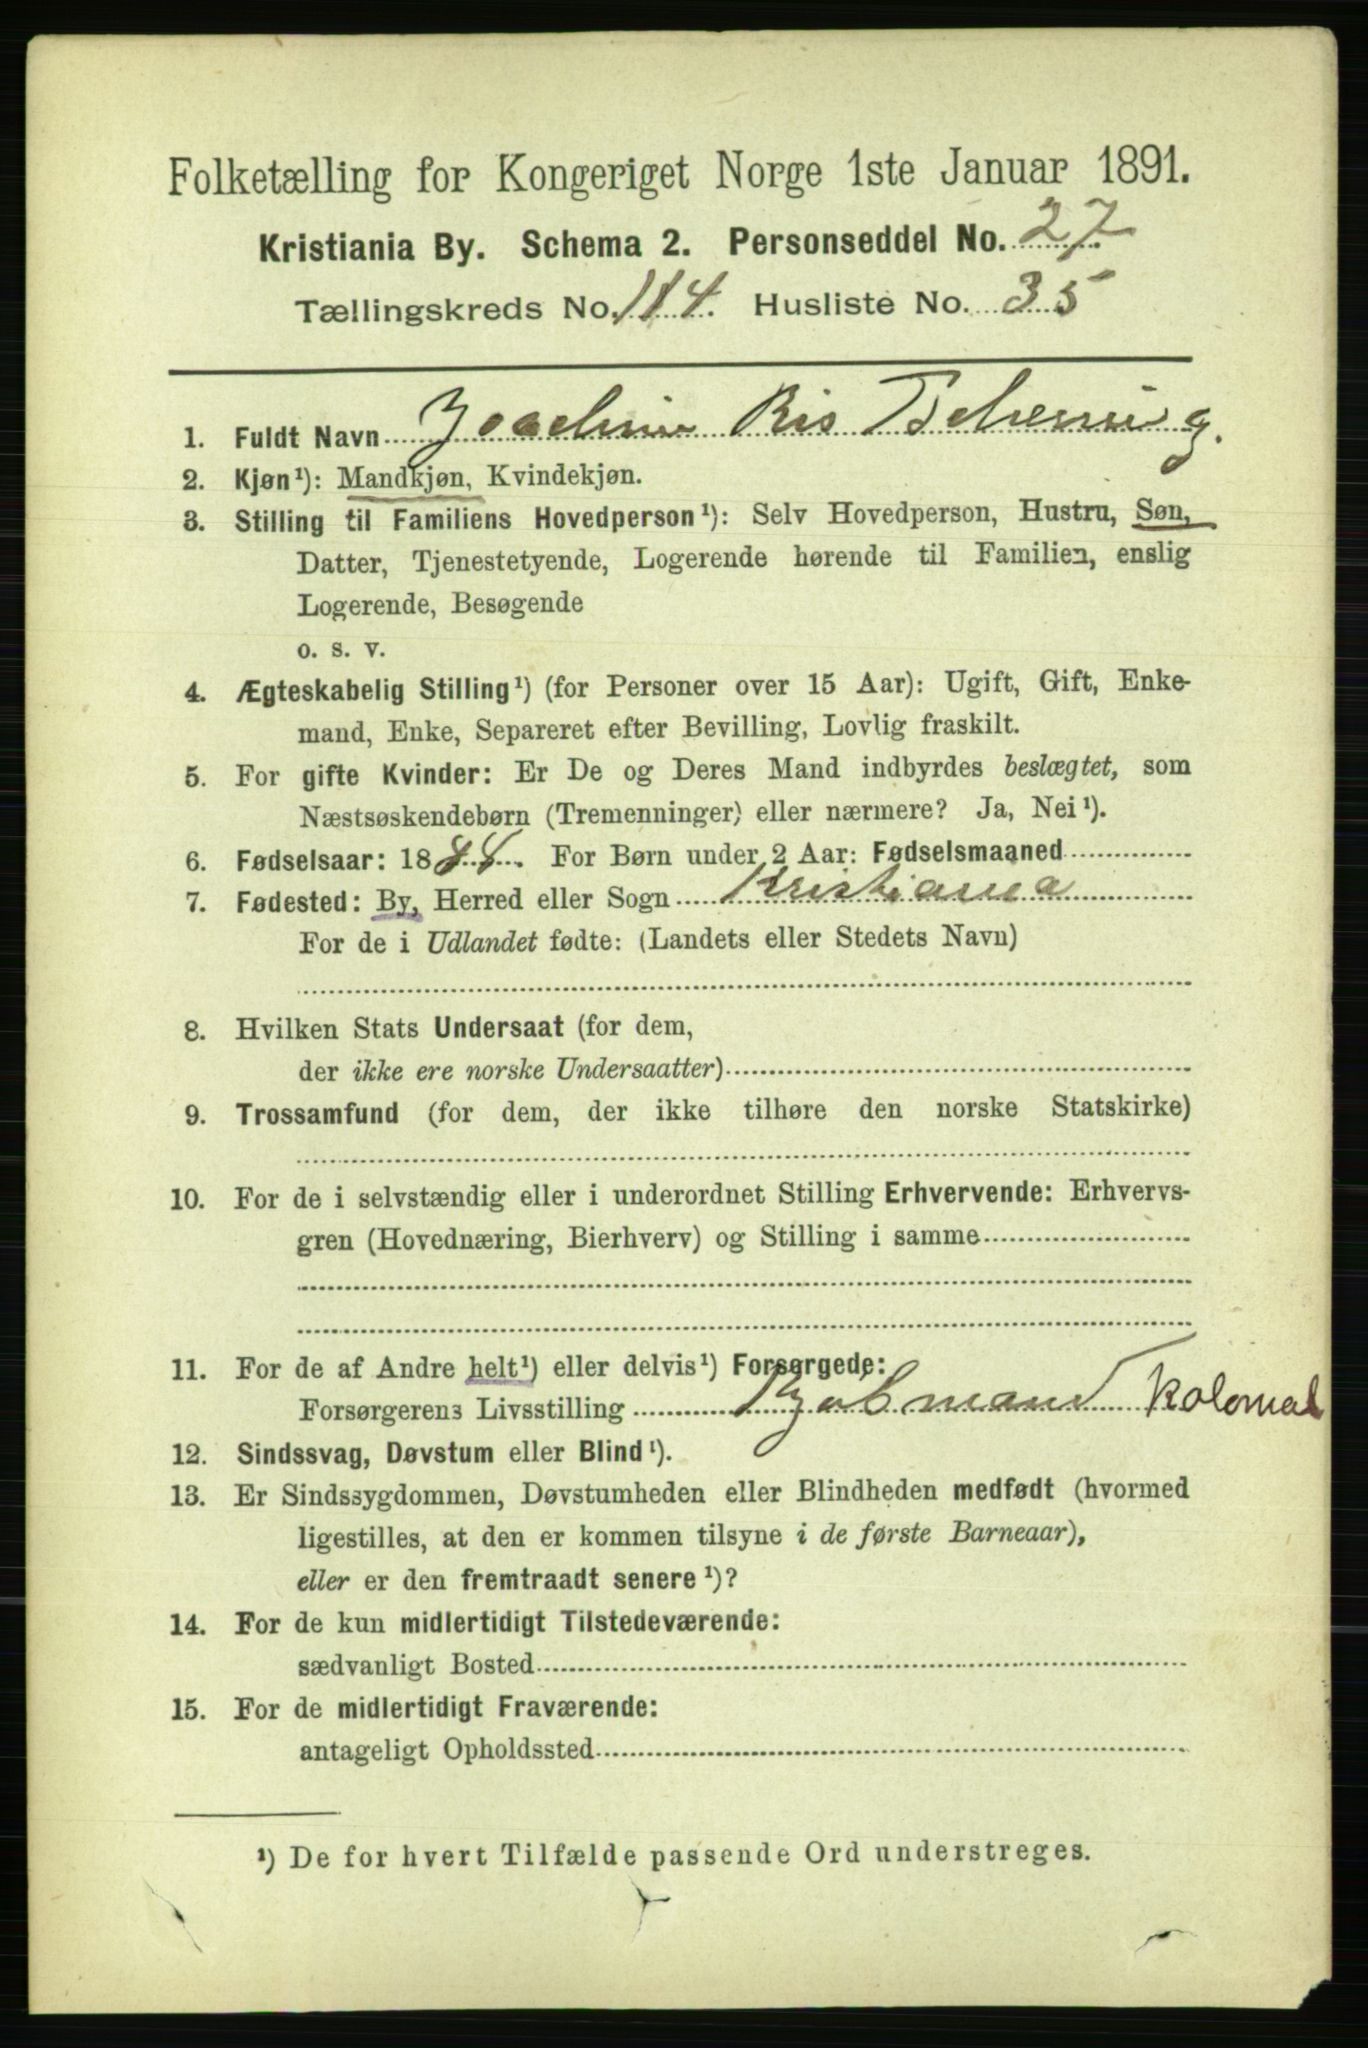 Folketælling for Kongeriget Norge 1ste Januar 1891.
Kristiania By. Schema 2. Personseddel No. 27
Tællingskreds No. 114. Husliste No. 35
1. Fuldt Navn Joachim Ris Tscherning.
2. Kjøn¹): Mandkjøn, Kvindekjøn.
3. Stilling til Familiens Hovedperson¹): Selv Hovedperson, Hustru, Søn,
Datter, Tjenestetyende, Logerende hørende til Familien, enslig
Logerende, Besøgende
o. s. v.
4. Ægteskabelig Stilling¹) (for Personer over 15 Aar): Ugift, Gift, Enke-
mand, Enke, Separeret efter Bevilling, Lovlig fraskilt.
5. For gifte Kvinder: Er De og Deres Mand indbyrdes beslægtet, som
Næstsøskendebørn (Tremenninger) eller nærmere? Ja, Nei¹).
6. Fødselsaar: 1884. For Børn under 2 Aar: Fødselsmaaned
7. Fødested: By, Herred eller Sogn Kristiania
For de i Udlandet fødte: (Landets eller Stedets Navn)
8. Hvilken Stats Undersaat (for dem,
der ikke ere norske Undersaatter)
9. Trossamfund (for dem, der ikke tilhøre den norske Statskirke)
10. For de i selvstændig eller i underordnet Stilling Erhvervende: Erhvervs-
gren (Hovednæring, Bierhverv) og Stilling i samme
11. For de af Andre helt¹) eller delvis¹) Forsørgede:
Forsørgerens Livsstilling Kjøbmand Kolonial
12. Sindssvag, Døvstum eller Blind¹).
13. Er Sindssygdommen, Døvstumheden eller Blindheden medfødt (hvormed
ligestilles, at den er kommen tilsyne i de første Barneaar),
eller er den fremtraadt senere¹)?
14. For de kun midlertidigt Tilstedeværende:
sædvanligt Bosted
15. For de midlertidigt Fraværende:
antageligt Opholdssted
¹) De for hvert Tilfælde passende Ord understreges.